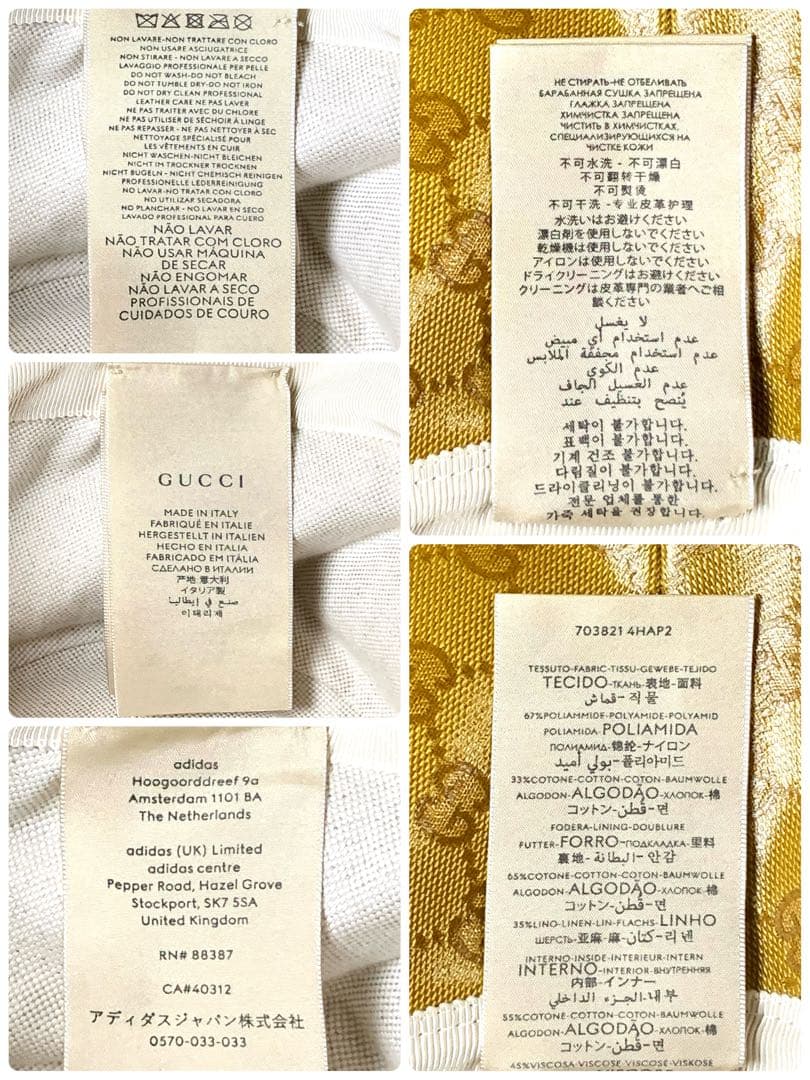 NON LAVARE-NON TRATTARE CON CLORO
NON USARE ASCIUGATRICE
NON STIRARE - NON LAVARE A SECCO
LAVAGGIO PROFESSIONALE PER PELLE
DO NOT WASH-DO NOT BLEACH
DO NOT TUMBLE DRY-DO NOT IRON
DO NOT DRY CLEAN PROFESSIONAL
LEATHER CARE NE PAS LAVER
NE PAS TRAITER AVEC DU CHLORE
NE PAS UTILISER DE SÉCHOIR À LINGE
NE PAS REPASSER - NE PAS NETTOYER À SEC
NETTOYAGE SPÉCIALISÉ POUR
LES VÊTEMENTS EN CUIR
NICHT WASCHEN-NICHT BLEICHEN
NICHT IM TROCKNER TROCKNEN
NICHT BUGELN - NICHT CHEMISCH REINIGEN
PROFESSIONELLE LEDERREINIGUNG
NO LAVAR-NO TRATAR CON CLORO
NO UTILIZAR SECADORA
NO PLANCHAR - NO LAVAR EN SECO
LAVADO PROFESIONAL PARA CUERO
NÃO LAVAR
NÃO TRATAR COM CLORO
NÃO USAR MÁQUINA
DE SECAR
NÃO ENGOMAR
NÃO LAVAR A SECO
PROFISSIONAIS DE
CUIDADOS DE COURO
GUCCI
MADE IN ITALY
FABRIQUÉ EN ITALIE
HERGESTELLT IN ITALIEN
HECHO EN ITALIA
FABRICADO EM ITÁLIA
СДЕЛАНО В ИТАЛИИ
产地 意大利
イタリア製
صنع في إيطاليا
이태리제
adidas
Hoogoorddreef 9a
Amsterdam 1101 BA
The Netherlands
adidas (UK) Limited
adidas centre
Pepper Road, Hazel Grove
Stockport, SK7 5SA
United Kingdom
RN# 88387
CA#40312
アディダスジャパン株式会社
0570-033-033
НЕ СТИРАТЬ-НЕ ОТБЕЛИВАТЬ
БАРАБАННАЯ СУШКА ЗАПРЕЩЕНА
ГЛАЖКА ЗАПРЕЩЕНА
ХИМЧИСТКА ЗАПРЕЩЕНА
ЧИСТИТЬ В ХИМЧИСТКАХ,
СПЕЦИАЛИЗИРУЮЩИХСЯ НА
ЧИСТКЕ КОЖИ
不可水洗 - 不可漂白
不可翻转干燥
不可熨烫
不可干洗 -专业皮革护理
水洗いはお避けください
漂白剤を使用しないでください
乾燥機は使用しないでください
アイロンは使用しないでください
ドライクリーニングはお避けください
クリーニングは皮革専門の業者へご相
談ください
لا يغسل
عدم استخدام أي مبيض
عدم استخدام مجففة الملابس
عدم الكوي
عدم الغسيل الجاف
يُنصح بتنظيف عند
세탁이 불가합니다.
표백이 불가합니다.
기계 건조 불가합니다.
다림질이 불가합니다.
드라이클리닝이 불가합니다.
전문 업체를 통한
가죽 세탁을 권장합니다.
703821 4HAP2
TESSUTO-FABRIC-TISSU-GEWEBE-TEJIDO
TECIDO-ТКАНЬ-表地-面料
قماش-직물
67%POLIAMMIDE-POLYAMIDE-POLYAMID
POLIAMIDA-POLIAMIDA
ПОЛИАМИД-锦纶-ナイロン
بولي أميد-폴리아미드
33%COTONE-COTTON-COTON-BAUMWOLLE
ALGODON-ALGODÃO-ХЛОПОК-棉
コットン-قطن-면
FODERA-LINING-DOUBLURE
FUTTER-FORRO-ПОДКЛАДКА-里料
裏地-البطانة-안감
65%COTONE-COTTON-COTON-BAUMWOLLE
ALGODON-ALGODÃO-ХЛОПОК-棉
コットン-قطن-면
35%LINO-LINEN-LIN-FLACHS-LINHO
ШЕРСТЬ-亚麻-麻-كتان-리넨
INTERNO-INSIDE-INTERIEUR-INTERN
INTERNO-INTERIOR-ВНУТРЕННЯЯ
内部-インナー
الجزء الداخلي-내부
55%COTONE-COTTON-COTON-BAUMWOLLE
ALGODON-ALGODÃO-ХЛОПОК-棉
コットン-قطن-면
45%VISCOSA-VISCOSE-VISCOSE-VISKOSE